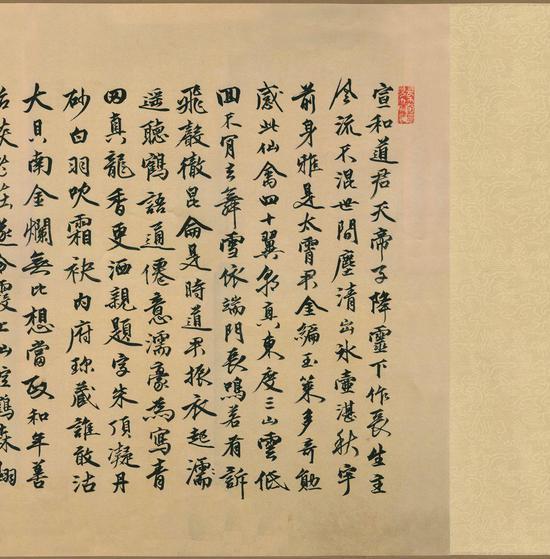 宣和道君天帝子降靈下作長生主
風流不混世間塵清出冰壺湛秋宇
前身雅是太霄君金編玉策多奇勉
感此仙禽四十翼朝真東度三山雲低
回不肎去舞雪依端門長鳴若有訴
飛聲徹昆侖是時道君振衣起濡
遥聽鶴語通僊意濡豪為寫青
田真龍香更洒親題字朱頂凝丹
砂白羽吹霜袂内府珎藏誰敢沽
大貝南金爛無比想當政和年善